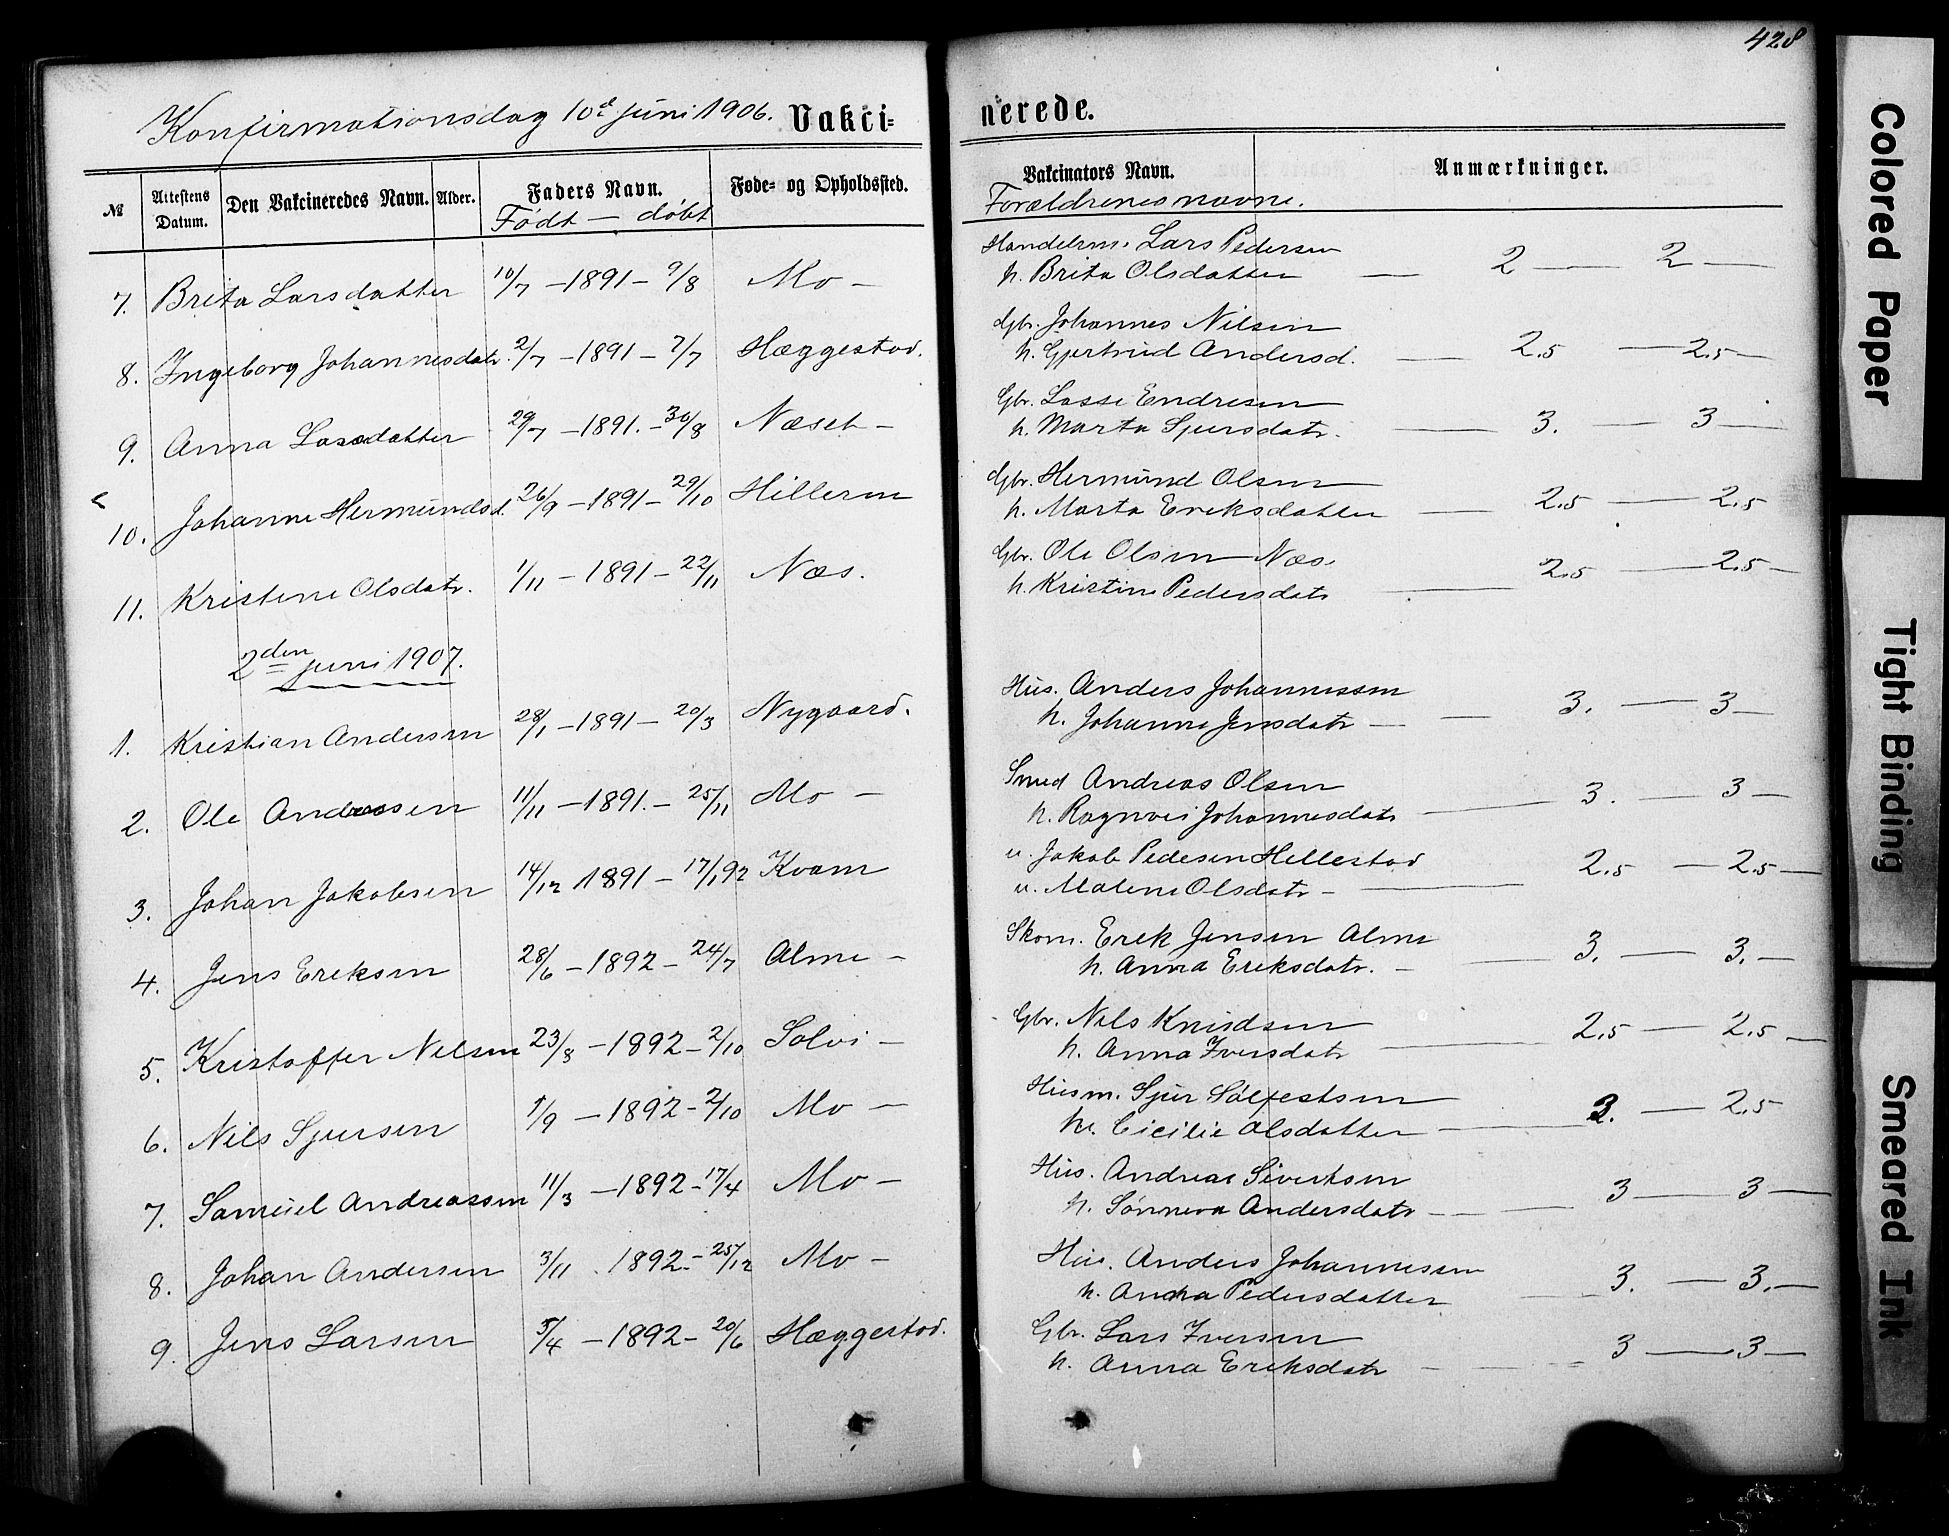 428
Konfirmationsdag 10de juni 1906. Vakci= nerede.
№ Attestens Datum. Den Vakcineredes Navn. Alder. Faders Navn. Føde= og Opholdssted. Vakcinators Navn. Anmærkninger.
Født — døbt Forældrenes navne.
Handelsm. Lars Pedersen
7. Brita Larsdatter 10/7 — 1891 — 9/8 Mo — h. Brita Olsdatter — 2 — 2 —
Gbr. Johannes Nilsen
8. Ingeborg Johannesdatr. 2/7 — 1891 — 7/7 Hæggestad. h. Gjertrud Andersd. — 2.5 — 2.5 —
Gbr. Lasse Endresen
9. Anna Lassedatter 29/7 — 1891. — 30/8 Næset — h. Marta Sjursdatr. — 3. — 3 —
Gbr. Hermund Olsen
10. Johanne Hermundsd. 26/9 — 1891 — 29/10 Hilleren h. Marta Eriksdatter — 2.5 — 2.5
Gbr. Ole Olsen Næs.
11. Kristine Olsdatr. 1/11 — 1891 — 22/11 Næs. h. Kristine Pedersdatr — 2.5 — 2.5 —
2den juni 1907.
Hus. Anders Johannessen
1. Kristian Andersen 28/1 — 1891 — 20/3 Nygaard. h. Johanne Jensdatr — 3. — 3 —
Smed Andreas Olsen
2. Ole Andreassen 11/11 — 1891. — 25/11 Mo — h. Ragnvei Johannesdatr — 3. — 3 —
u. Jakob Pedesen Hellestad
3. Johan Jakobsen 14/12 1891 — 17/1 92 Kvam u. Malene Olsdatr — 2.5 — 2.5 —
Skom. Erik Jensen Alme
4. Jens Eriksen 28/6 — 1892 — 24/7 Alme — h. Anna Eriksdatr. — 3. — 3. —
Gbr. Nils Knudsen
5. Kristoffer Nilsen 23/8 — 1892 — 2/10 Solvi — h. Anna Iversdatr — 2.5 — 2.5 —
Husm. Sjur Sølfestsen
6. Nils Sjursen 1/9 — 1892 — 2/10 Mo — h. Cicilie Olsdatter — 3. — 2.5
Hus. Andreas Sivertsen
7. Samuel Andreassen 11/3 — 1892 — 17/4 Mo — h. Sønneva Andersdatr — 3 — 3 —
Hus. Anders Johannesen
8. Johan Andersen 3/11 . 1892 — 25/12 Mo — h. Anna Pedersdatter — 3. — 3. —
Gbr. Lars Iversen
9. Jens Larsen 5/4 — 1892 — 20/6 Hæggestad. h. Anna Eriksdatr — 3 — 3 —
Colored Paper
Tight Binding
Smeared Ink